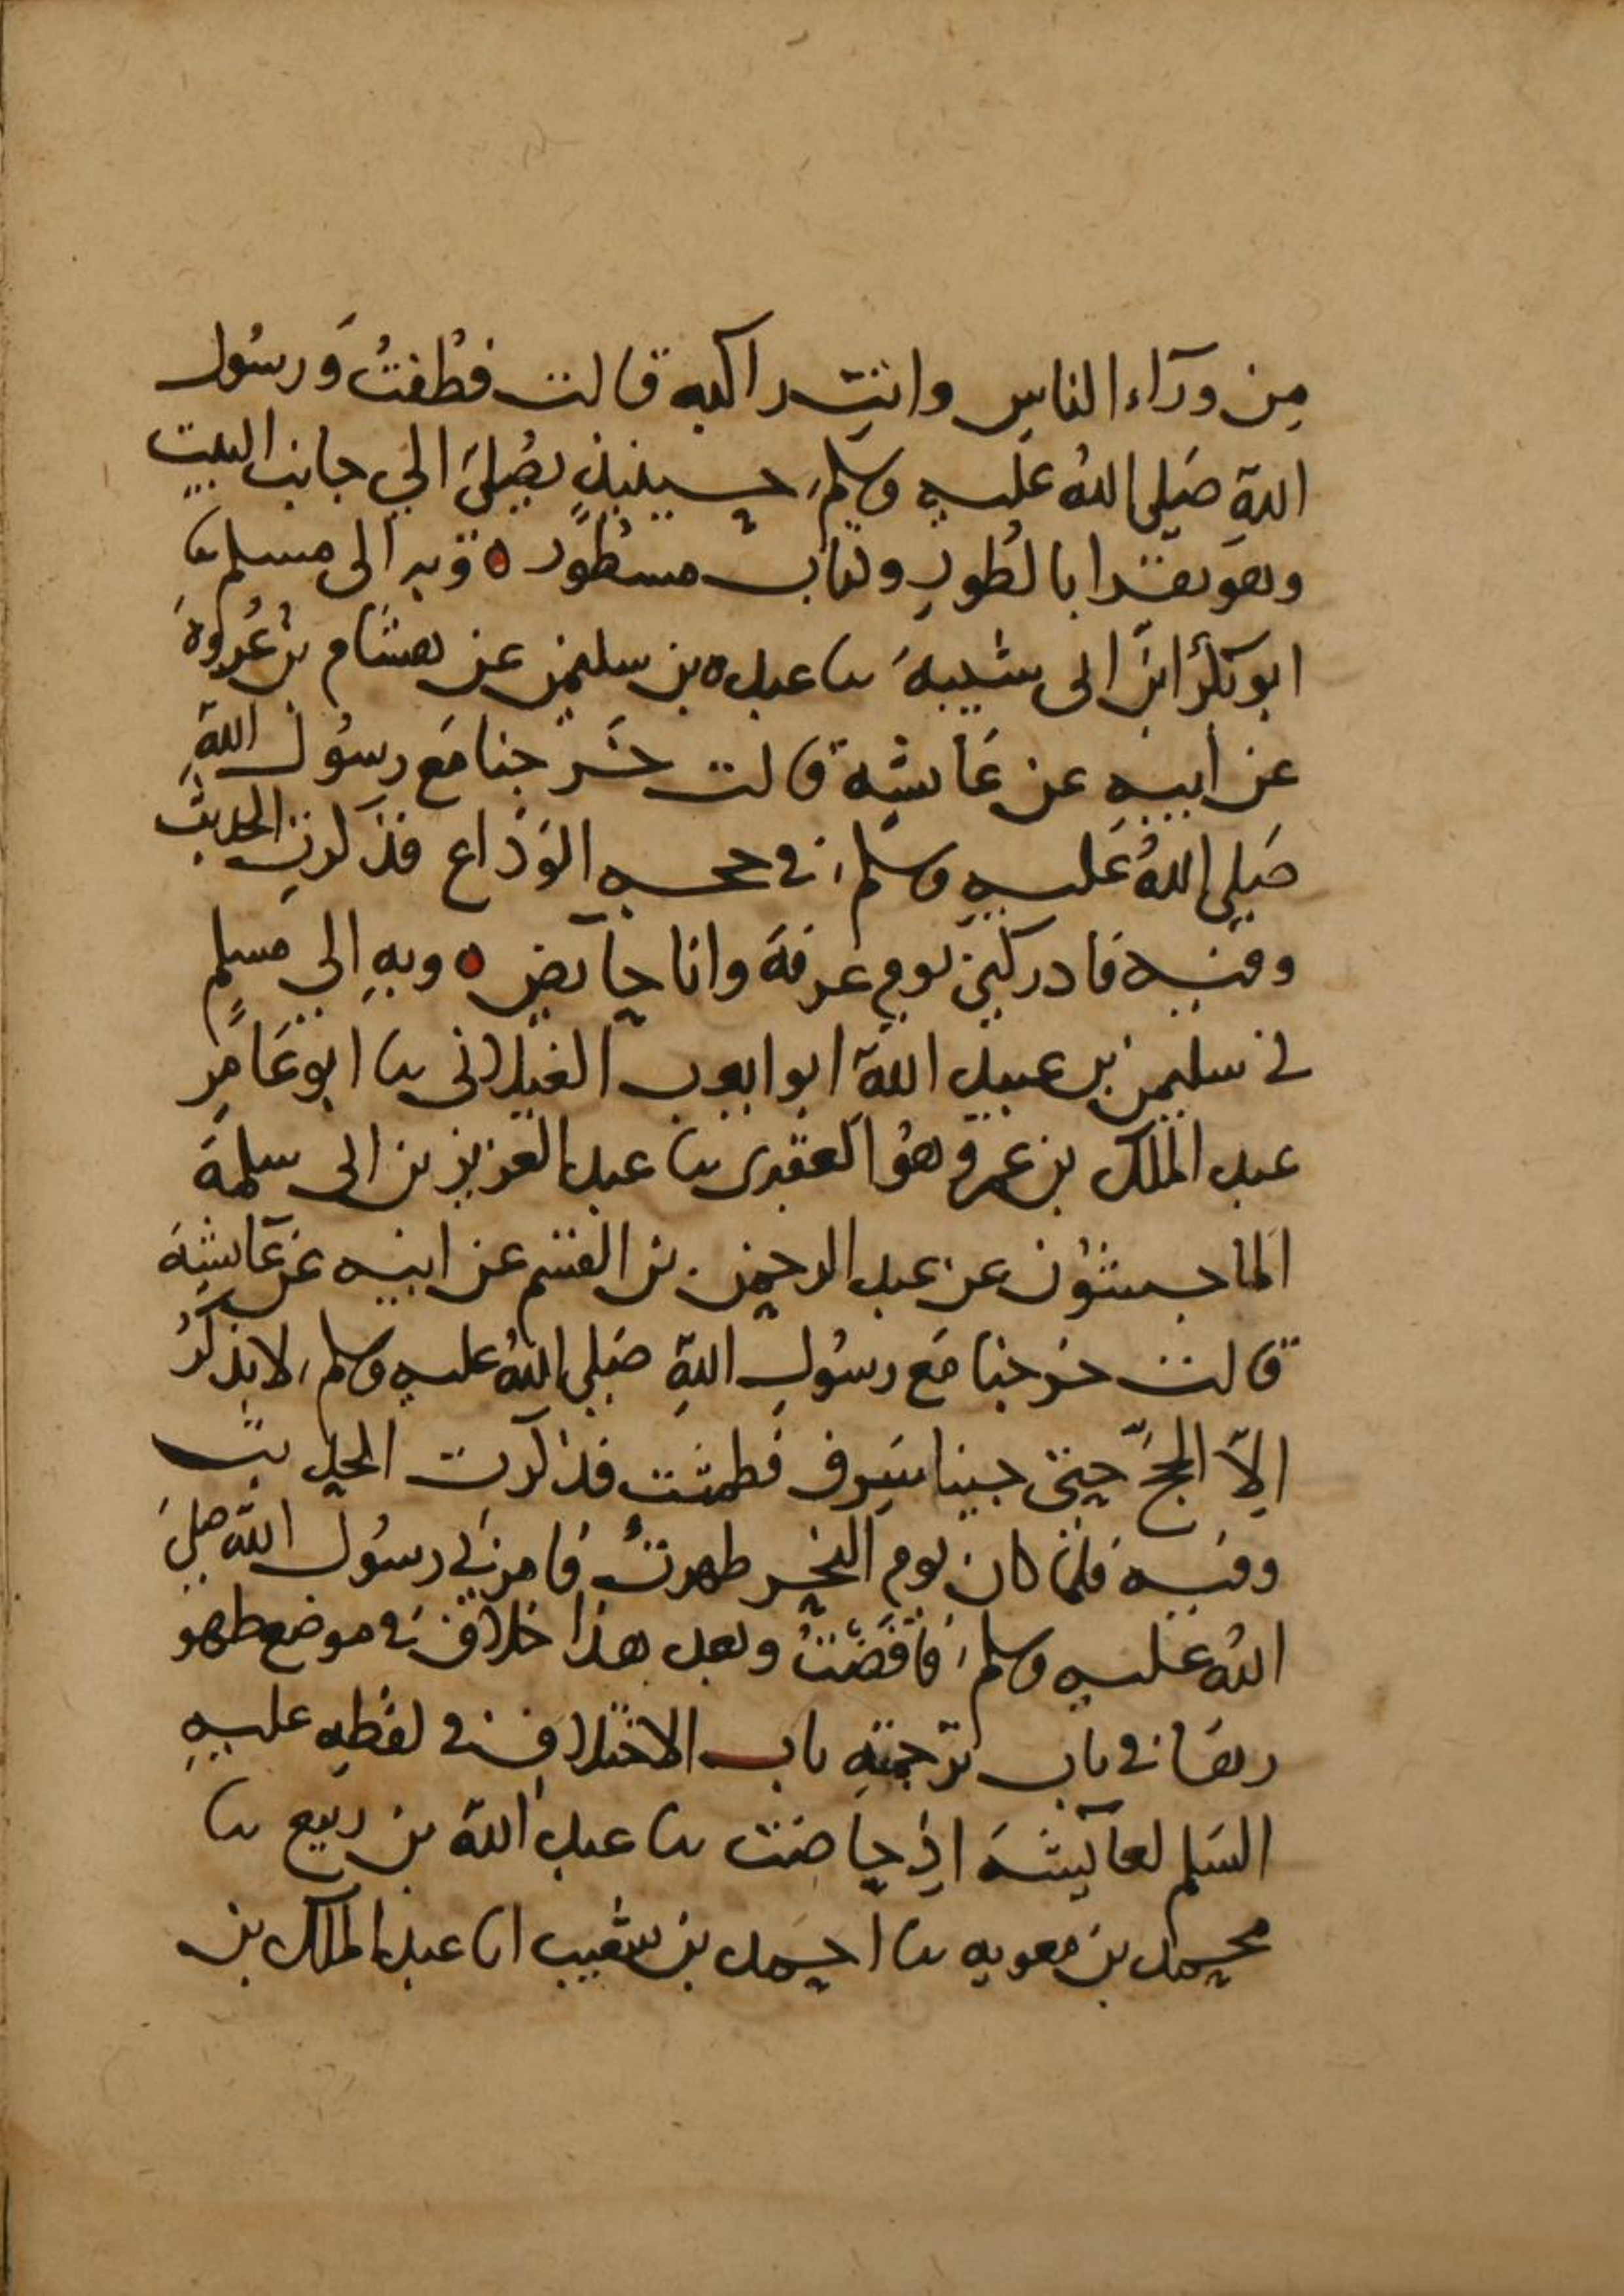 مِن ورآء الناسِ وانتِ راكبه قالت فطُفتُ وَرسُول
اللهِ صَلى اللهُ عليهِ وسلم حينئذٍ يُصَلى الى جانب البيت
وهو يقرا بالطُورِ وكتاب مسطور ه وبه الى مسلم ثنا
ابو بكرُ ابنُ ابى شيبة ثنا عبده بن سليمن عن هشام بن عُروةَ
عن ابيهِ عن عَائشة قالت خرجنا مَع رسُول اللهِ
صَلى اللهُ عَليهِ وسلم في حجه الوَدَاع فذكرتِ الحديث
وفيه فادركنى يوم عرفَة وانا حآيض ه وبهِ الى مسلمٍ
نى سليمن بن عبيد الله ابو ايوب الغيلانى ثنا ابو عَامرٍ
عبد الملك بن عمرو هوُ العقدى ثنا عبد العزيز بن ابى سلمةَ
الماجشون عن عبد الرحمن بن القسم عن ابيه عن عَآئشةَ
قالت خرجنا مَع رسُولِ اللهِ صَلى اللهُ عليهِ وسلم لا نذكرُ
الاّ الحجَّ حتى جينا سَرِف فطمثت فذكرت الحديث
وفيه فلما كان يوم النحرِ طهرتُ فامرنى رسُول الله صلى
اللهُ عليه وسلم فافَضتُ وبعد هذا خلاف في موضع طهو
رهَا في باب ترجمته باب الاختلاف في لفظه عليهِ
السَلم لعآئشةَ اذ حاضت ثنا عبد الله بن ربيع ثنا
محمد بن معويه ثنا احمد بن شعيب انا عبد الملك بن